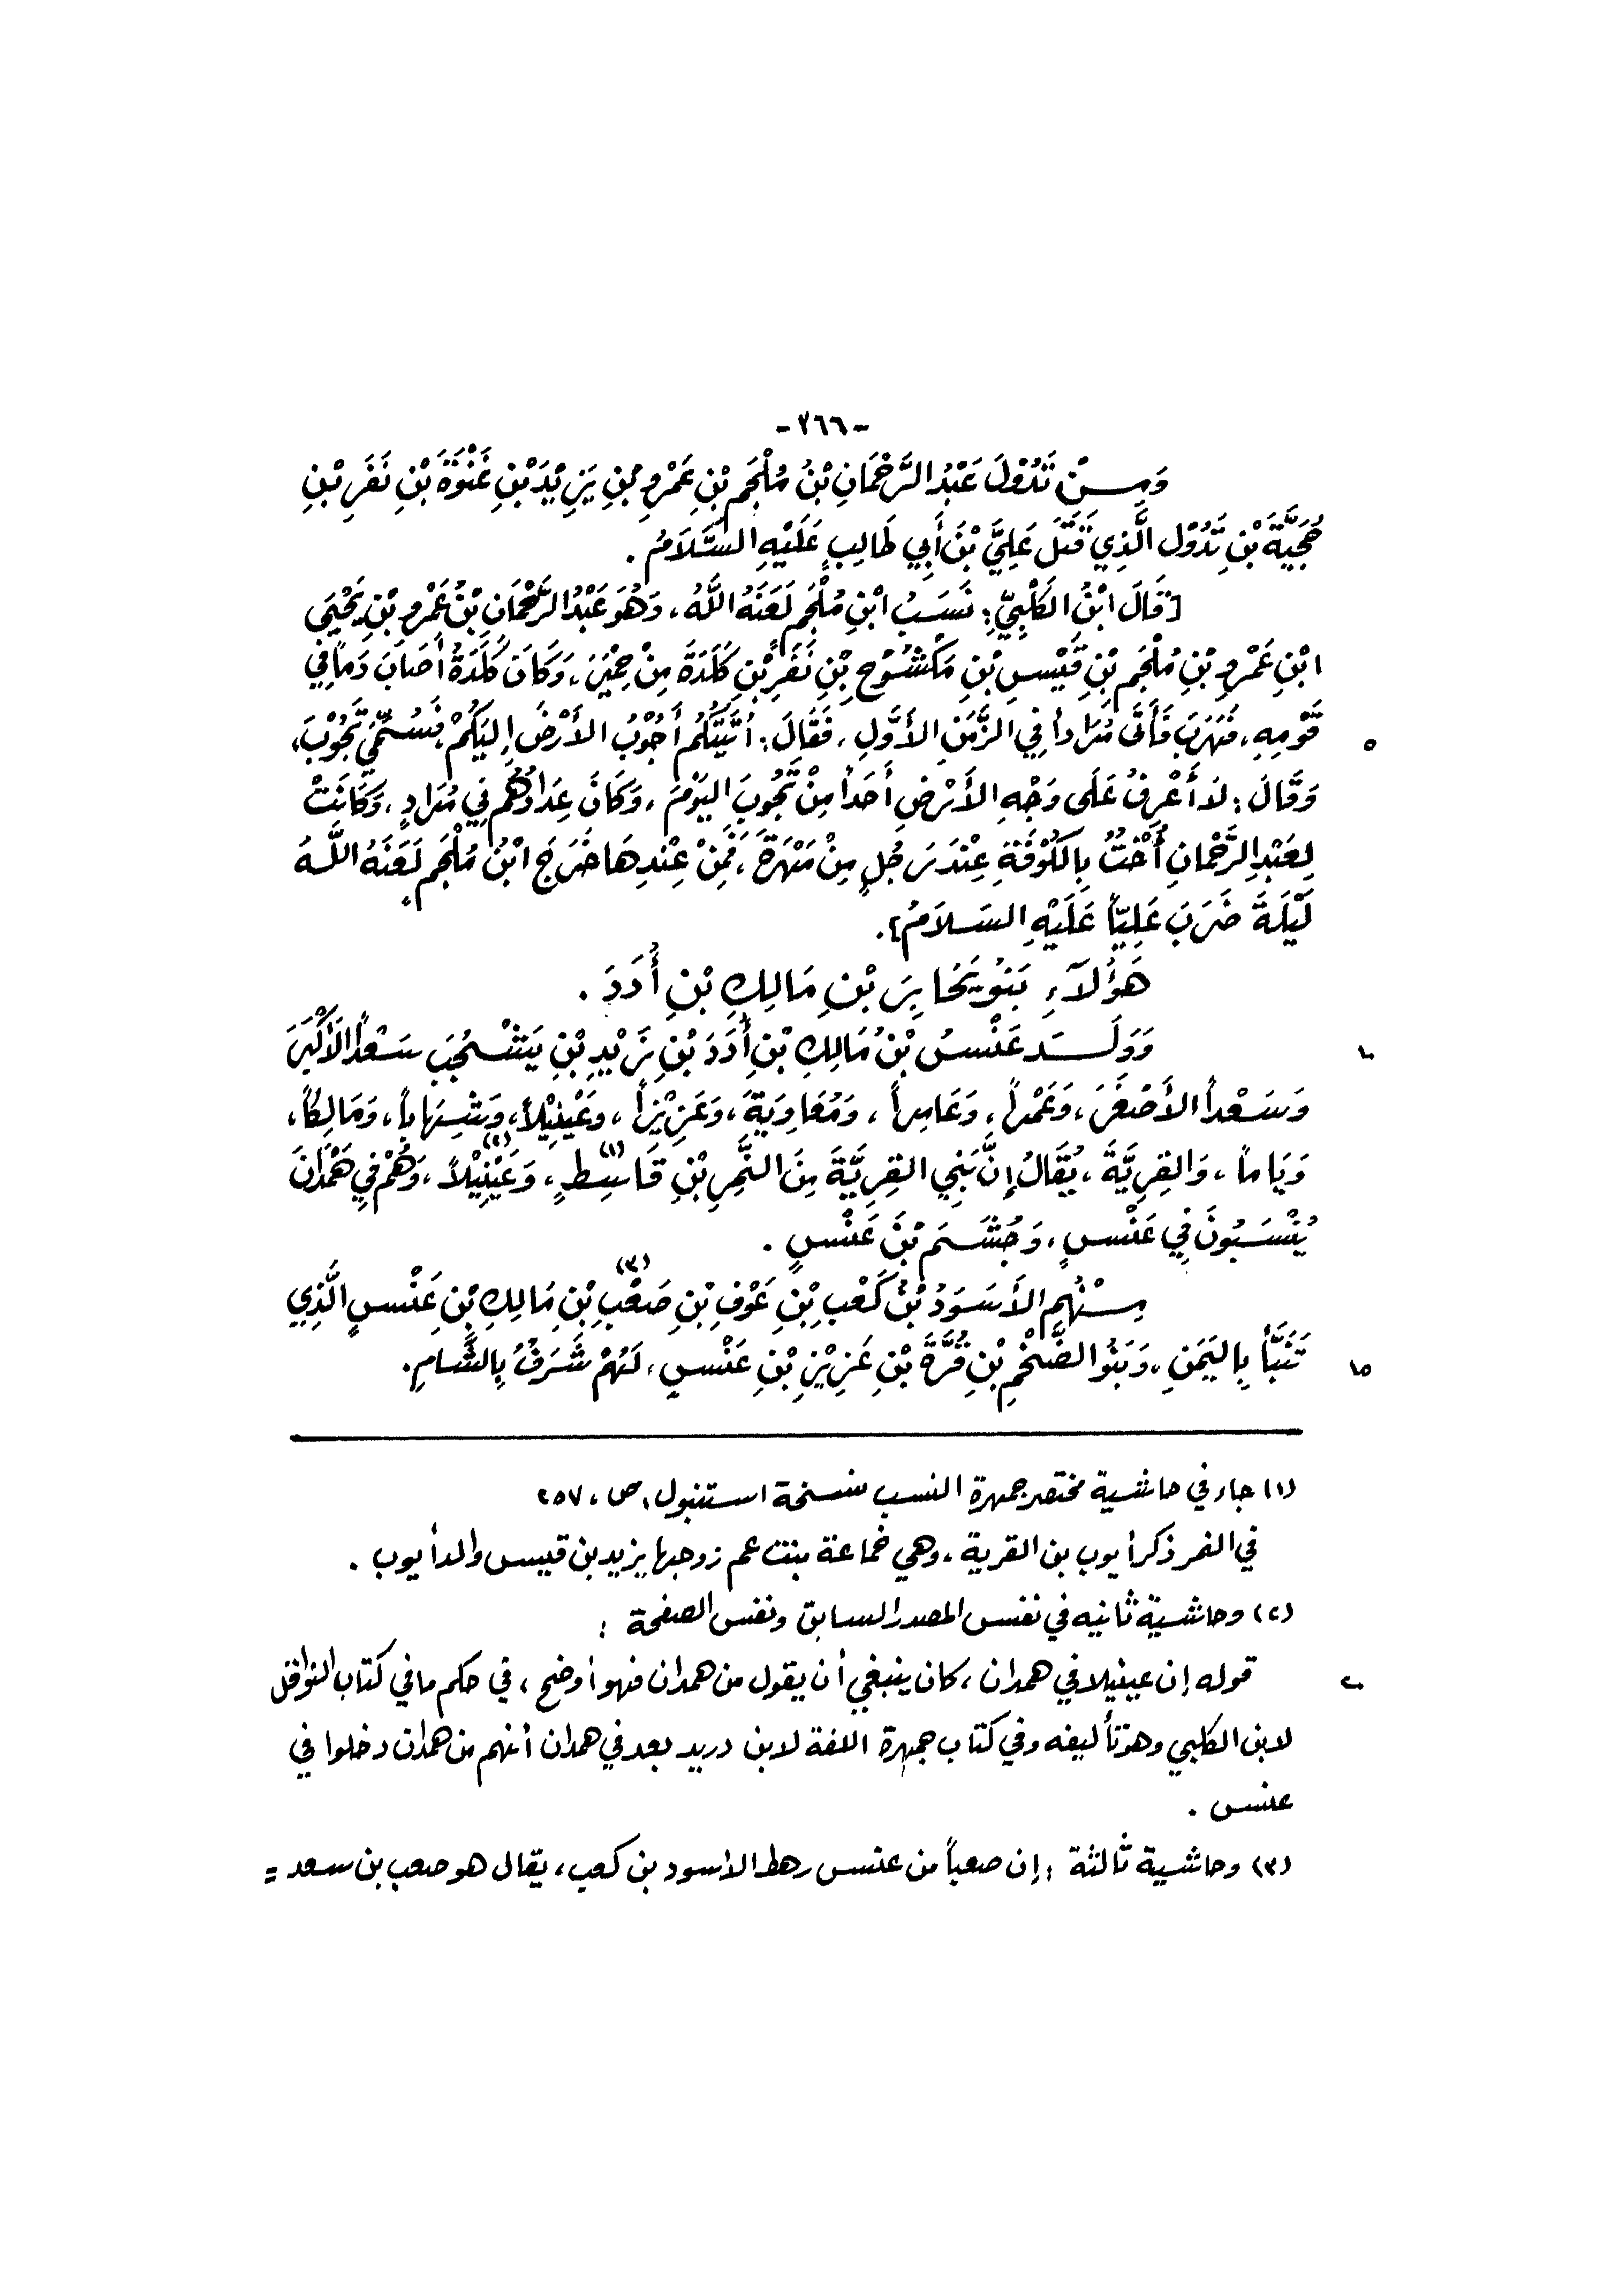 -٣٦٦-
وَمِنْ تَدُوْلَ عَبْدُ الرَّحْمَانِ بْنُ مُلْجَمِ بْنِ عَمْرِو بْنِ يَزِيْدَ بْنِ غَنْوَةَ بْنِ نَفَرِ بْنِ
حُجَيَّةَ بْنِ تَدُوْلَ الَّذِي قَتَلَ عَلِيَّ بْنَ أَبِي طَالِبٍ عَلَيْهِ السَّلَامُ .
[قَالَ ابْنُ الكَلْبِيِّ: نَسَبُ ابْنِ مُلْجَمٍ لَعَنَهُ اللَّهُ، وَهُوَ عَبْدُ الرَّحْمَانِ بْنُ عَمْرِو بْنِ يَحْيَى
ابْنِ عَمْرِو بْنِ مُلْجَمِ بْنِ قَيْسِ بْنِ مَكْشُوْحِ بْنِ نَفَرِ بْنِ كَلَدَةَ مِنْ حِمْيَرَ، وَكَانَ كَلَدَةُ أَصَابَ دَمَاً فِي
قَوْمِهِ، فَهَرَبَ فَأَتَى مُرَاداً فِي الزَّمَنِ الأَوَّلِ، فَقَالَ: أَتَيْتُكُمْ أَجُوْبُ الأَرْضَ إِلَيْكُمْ، فَسُمِّيَ تَجُوْبَ، ٥
وَقَالَ: لَا أَعْرِفُ عَلَى وَجْهِ الأَرْضِ أَحَداً مِنْ تَجُوبَ اليَوْمَ، وَكَانَ عِدَادُهُمْ فِي مُرَادٍ، وَكَانَتْ
لِعَبْدِ الرَّحْمَانِ أُخْتٌ بِالكُوْفَةِ عِنْدَ رَجُلٍ مِنْ مَهْرَةَ، فَمِنْ عِنْدِهَا خَرَجَ ابْنُ مُلْجَمٍ لَعَنَهُ اللَّهُ
لَيْلَةَ ضَرَبَ عَلِيّاً عَلَيْهِ السَلَامُ].
هَؤُلَآءِ بَنُو يُحَابِرَ بْنِ مَالِكِ بْنِ أُدَدَ .
وَوَلَـدَ عَنْسُ بْنُ مَالِكِ بْنِ أُدَدَ بْنِ زَيْدِ بْنِ يَشْجُبَ سَعْداً الأَكْبَرَ ١٠
وَسَعْداً الأَصْغَرَ، وَعَمْراً، وَعَامِراً، وَمُعَاوِيَةَ، وَعَزِيْزاً، وَعَيْنِيْلاً، وَشِهَاباً، وَمَالِكاً،
وَيَاماً، وَالقِرِيَّةَ، يُقَالُ إِنَّ بَنِي القِرِيَّةَ مِنَ النَّمِرِ بْنِ قَاسِطٍ(١)، وَعَيْنِيْلاً(٢)، وَهُمْ فِي هَمْدَانَ
يُنْسَبُونَ فِي عَنْسٍ، وَجُشَمَ بْنَ عَنْسٍ .
مِـنْهُمِ الأَسْوَدُ بْنُ كَعْبِ بْنِ عَوْفِ بْنِ صَعْبِ(٣) بْنِ مَالِكِ بْنِ عَنْسٍ الَّذِي
تَنَبَّأَ بِاليَمَنِ، وَبَنُو الضَّخْمِ بْنِ قُرَّةَ بْنِ عَزِيْزِ بْنِ عَنْسٍ، لَهُمْ شَرَفٌ بِالشَّامِ. ١٥
(١) جاء في حاشية مختصر جمهرة النسب نسخة استنبول، ص، ٢٥٧
في النمر ذكر أيوب بن القرية، وهي خماعة بنت عم زوجها يزيد بن قيس والد أيوب .
(٢) وحاشية ثانيه في نفس المصدر السابق ونفس الصفحة :
قوله إن عينيلا في همدان، كان ينبغي أن يقول من همدان فهو أوضح، في حكم ما في كتاب النوافل ٢٠
لابن الكلبي وهو تأليفه وفي كتاب جمهرة اللغة لابن دريد بعد في همدان أنهم من همدان دخلوا في
عنس .
(٣) وحاشية ثالثة : إن صعباً من عنس رهط الأسود بن كعب، يقال هو صعب بن سعد =